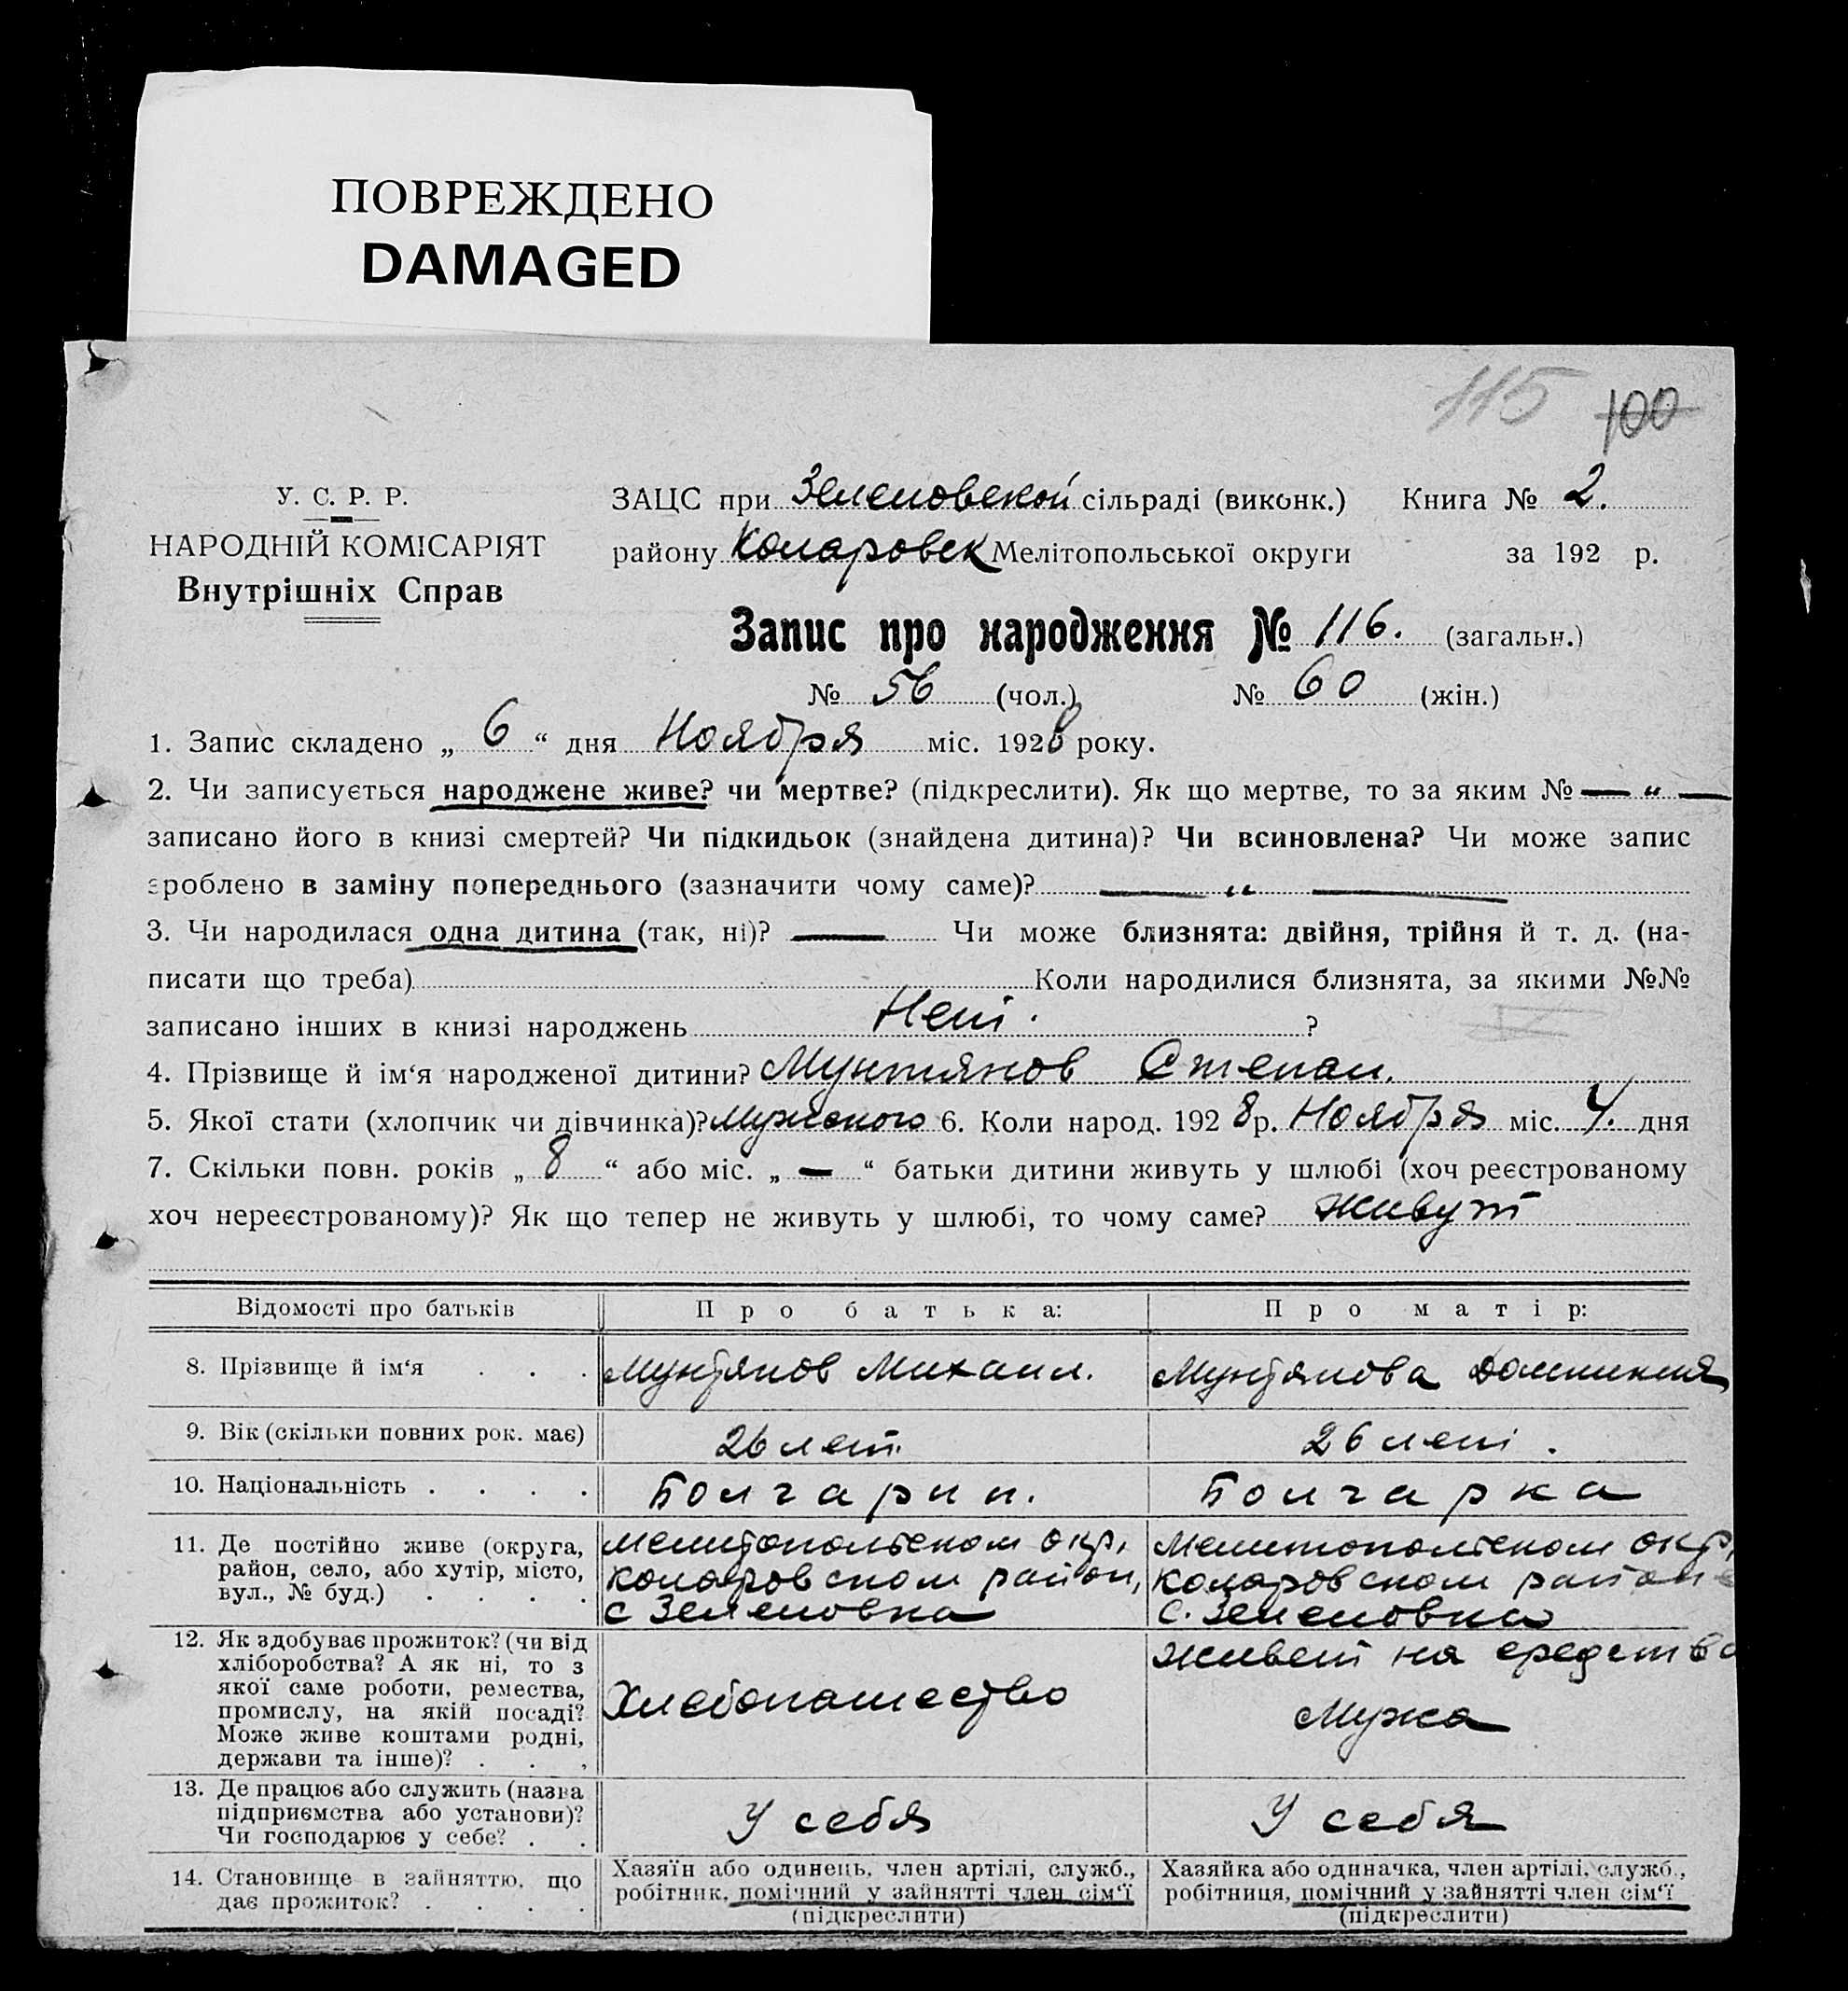 ПОВРЕЖДЕНО
DAMAGED
115 100
У. С. Р. Р.
НАРОДНІЙ КОМІСАРІЯТ
Внутрішніх Справ
ЗАЦС при Зеленовской сільраді (виконк.) Книга № 2.
району Коларовск Мелітопольської округи за 192 р.
Запис про народження № 116. (загальн.)
№ 56 (чол.) № 60 (жін.)
1. Запис складено „ 6 “ дня Ноября міс. 1928 року.
2. Чи записується народжене живе? чи мертве? (підкреслити). Як що мертве, то за яким № — „ —
записано його в книзі смертей? Чи підкидьок (знайдена дитина)? Чи всиновлена? Чи може запис
зроблено в заміну попереднього (зазначити чому саме)? — „ —
3. Чи народилася одна дитина (так, ні)? — Чи може близнята: двійня, трійня й т. д. (на-
писати що треба) Коли народилися близнята, за якими №№
записано інших в книзі народжень Нет. ?
4. Прізвище й ім‘я народженої дитини? Мунтянов Степан.
5. Якої стати (хлопчик чи дівчинка)? Мужского 6. Коли народ. 1928 р. Ноября міс. 4. дня
7. Скільки повн. років „ 8 “ або міс. „ — “ батьки дитини живуть у шлюбі (хоч реєстрованому
хоч нереєстрованому)? Як що тепер не живуть у шлюбі, то чому саме? Живут
Відомості про батьків Про батька: Про матір:
8. Прізвище й ім‘я . . . Мунтянов Михаил. Мунтянова Домникия
9. Вік (скільки повних рок. має) 26 лет. 26 лет.
10. Національність . . . . Болгарин. Болгарка
11. Де постійно живе (округа, район, село, або хутір, місто, вул., № буд.) . . . .
Мелитопольском окр,
Коларовском район,
с Зеленовка
Мелитопольском окр,
Коларовском районе
с. Зеленовка
12. Як здобуває прожиток? (чи від
хліборобства? А як ні, то з
якої саме роботи, ремества,
промислу, на якій посаді?
Може живе коштами родні,
держави та інше)? . . .
Хлебопашество
Живет на средства
Мужа
13. Де працює або служить (назва
підприємства або установи)?
Чи господарює у себе? . .
У себя У себя
14. Становище в зайняттю, що
дає прожиток? . . . .
Хазяїн або одинець, член артілі, служб.,
робітник, помічний у зайнятті член сім‘ї
(підкреслити)
Хазяйка або одиначка, член артілі, служб.,
робітниця, помічний у зайнятті член сім‘ї
(підкреслити)